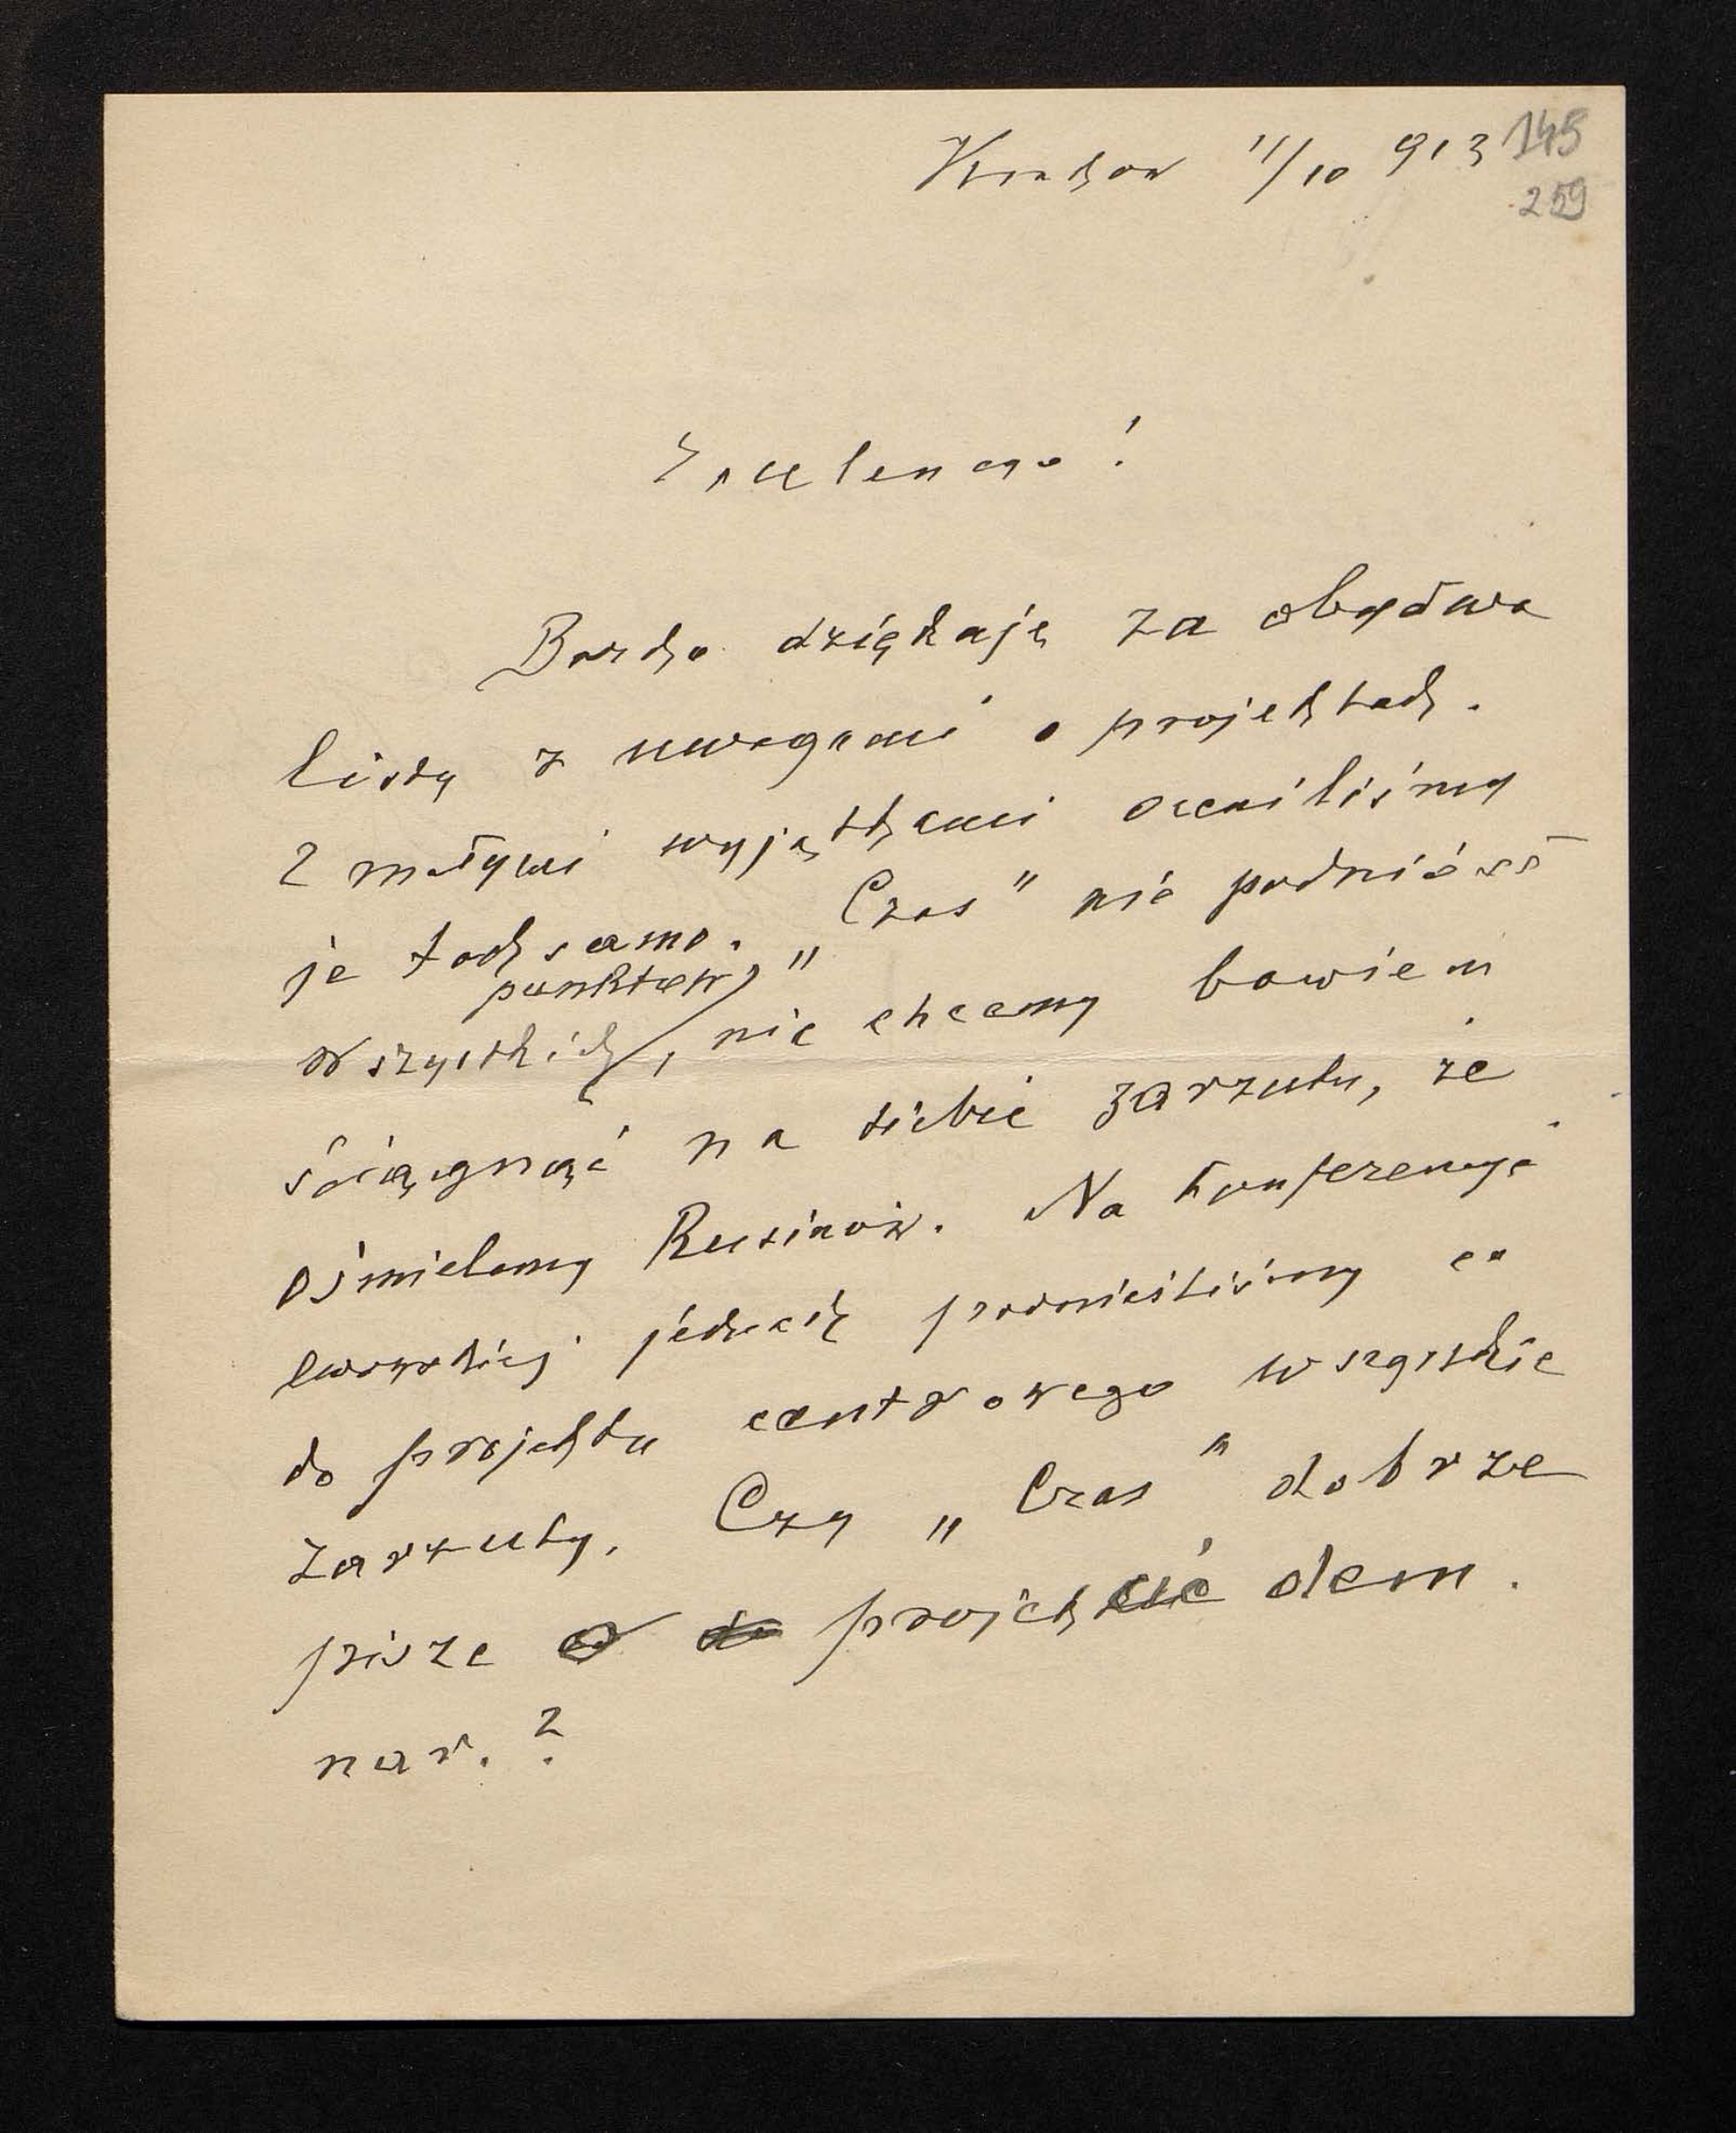 Kraków 11/10 913 145
259
Excelencyo!
Bardzo dziękuję za obydwa
listy z uwagami o projektach.
Z małymi wyjątkami oceniliśmy
je tak samo. „Czas" nie podniósł
punktów
wszystkich, nie chcemy bowiem
ściągnąć na siebie zarzutu, że
ośmielamy Rusinów. Na konferencyi
lwowskiej jednak podnieśliśmy co
do projektu centrowego wszystkie
zarzuty. Czy „Czas" dobrze
pisze o projekcie dem.
nar.?